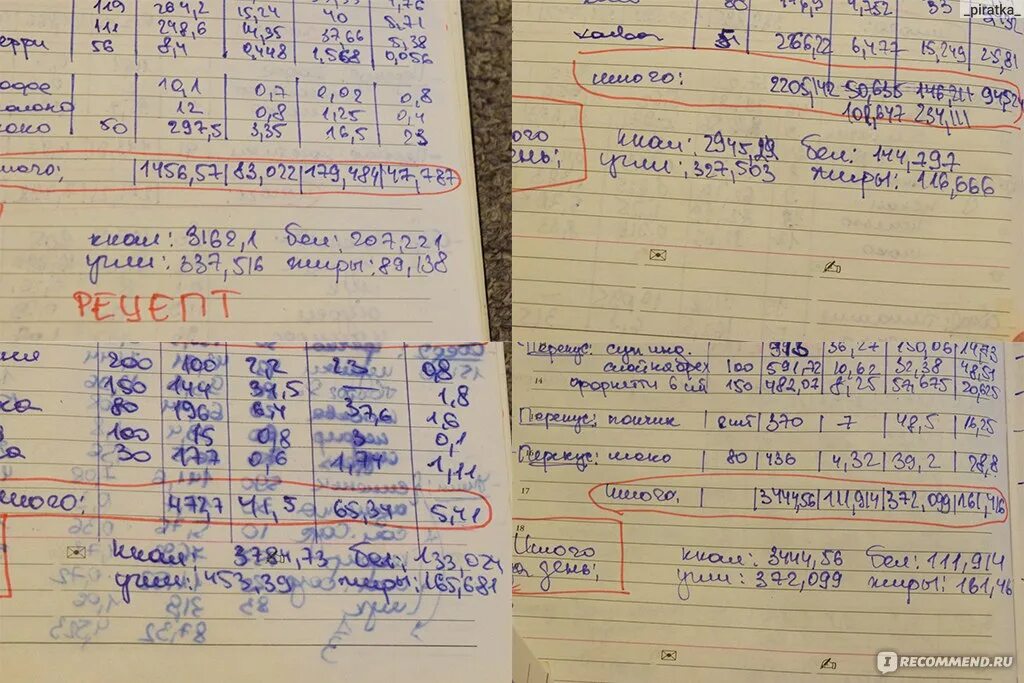 119 284,2 15,24 40 4,76
111 248,6 14,35 37,66 5,71
ерри 56 8,4 0,448 1,568 5,38
0,056
офе 10,1 0,7 0,02 0,8
олоко 12 0,8 1,25 0,4
око 50 297,5 3,35 16,5 23
того: 1456,57 83,022 179,484 47,787
ккал: 3162,1 бел: 207,221
угли: 337,516 жиры: 89,138
РЕЦЕПТ
_piratka_
80 4,752 33
халва 51 2666,22 6,477 15,249 25,81
итого: 2205,42 50,635 146,217
108,647 234,111
ого
ень;
ккал: 2945,29 бел: 144,797
угли: 327,503 жиры: 116,666
200 100 2,2 23 0,8
150 144 31,5 1,8
ка 80 196 37,6 1,6
100 15 0,8 3 0,1
а 30 177 0,6 1,74 1,11
того: 4727 41,5 65,34 5,41
ккал 3784,73 бел: 133,024
угли: 453,39 жиры: 165,681
Перекус: 993 36,27 150,06 14,73
слойка брех 100 591,72 10,62 32,38 48,51
14 150 482,07 8,25 57,675 20,625
Перекус: пончик 2 шт 370 7 48,5 16,25
Перекус: шоко 80 436 4,32 39,2 28,8
17 Итого: 3444,56 111,914 372,099 161,416
18
Итого
за день:
ккал: 3444,56 бел: 111,914
угли: 372,099 жиры: 161,416
IRECOMMEND.RU